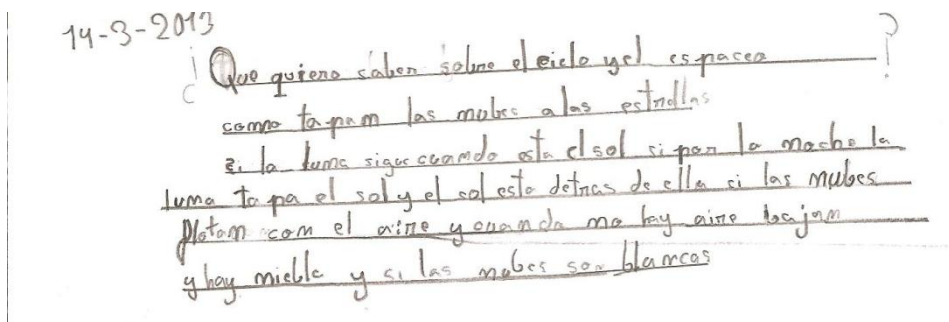 14-3-2013
¿Que quiero saber sobre el cielo y el espaceo?
como ta pam las mubes a las estrellas
si la luma sigue cuamdo esta el sol si por la moche la
luma ta pa el sol y el sol esta detras de ella si las mubes
flotam com el aire y cuando mo hay aire bajam
y hay miebla y si las mubes son blamcas